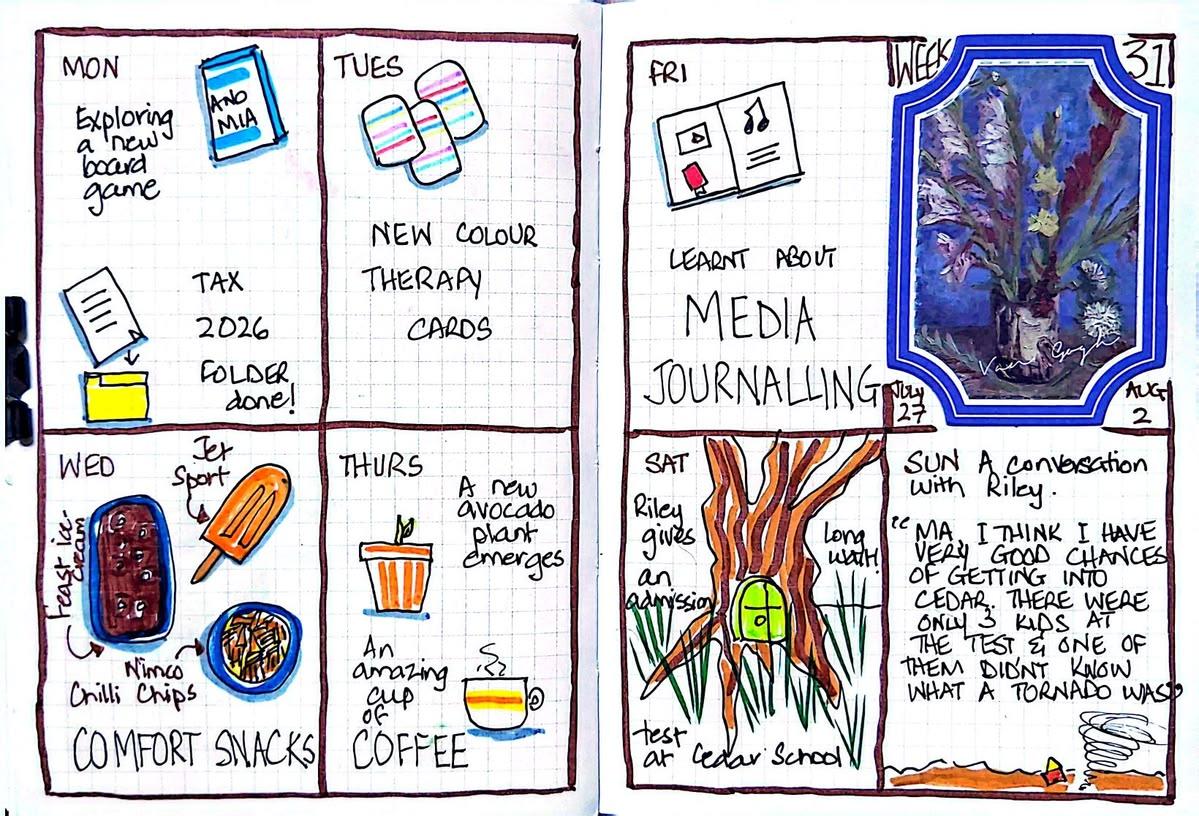 MON
Exploring
a new
board
game
ANO
MIA
TAX
2026
FOLDER
done!
TUES
NEW COLOUR
THERAPY
CARDS
WED
Jet
Sport
Feast ice-
cream
Nimco
Chilli Chips
COMFORT SNACKS
THURS
A new
avocado
plant
emerges
An
amazing
cup
of
COFFEE
FRI
LEARNT ABOUT
MEDIA
JOURNALLING
WEEK 31
Van Gogh
JULY
27
AUG
2
SAT
Riley
gives
an
admission
Long
wait!
test
at Cedar School
SUN A conversation
with Riley.
"MA, I THINK I HAVE
VERY GOOD CHANCES
OF GETTING INTO
CEDAR. THERE WERE
ONLY 3 KIDS AT
THE TEST & ONE OF
THEM DIDN'T KNOW
WHAT A TORNADO WAS"